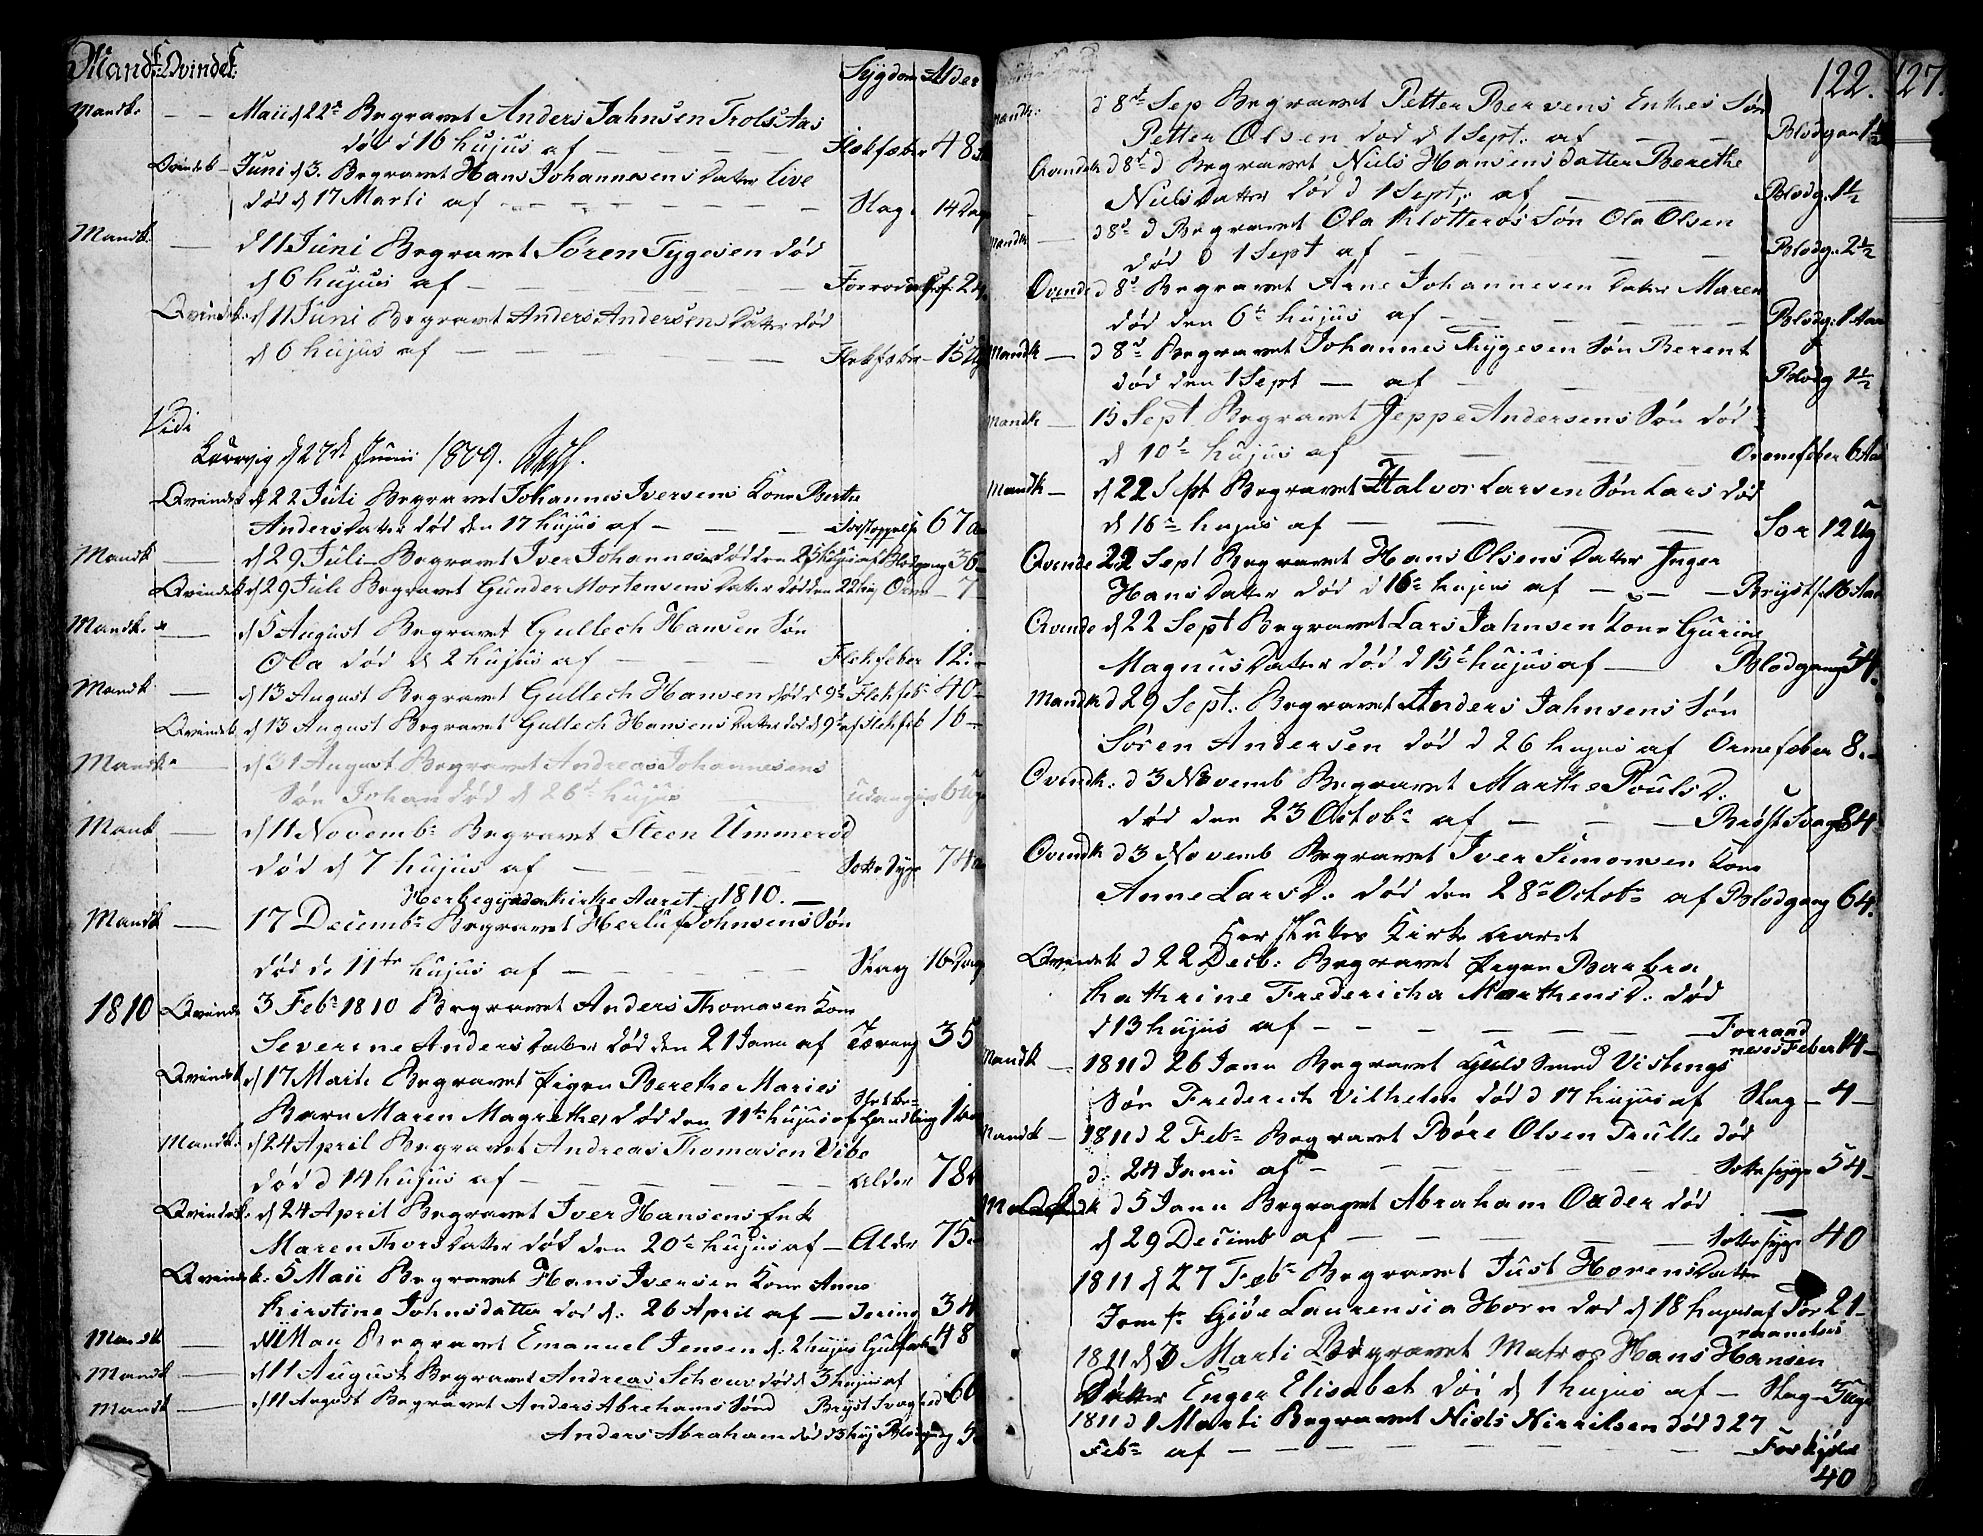 Mandk: Qvindek: Sygdom Alder
Mandk. — Maii d 22de Begravet Anders Jahnsen Trols Aas
død d 16 hujus af — — — Flekfeber 48
Qvindek — Juni d 3. Begravet Hans Johannesens Datter Live
død d 17 Marti af — — — Slag 14 Dag
Mandk. — d 11 Juni Begravet Sören Tygesen død
d 6 hujus af — — —
Qvindek. d 11 Juni Begravet Anders Andersens Datter død
d 6 hujus af — — — Flekfeber — 15
Vidi
d 27de Junii 1809.
Qvindek d 22 Juli Begravet Johannes Iversens Kone Berthe
Anders Datter død den 17 hujus af — — Forstoppelse 67
Mandk — d 29 Juli Begravet Iver Johannesen død den 25 hujus af Blodgang 36
Qvindek d 29 Juli Begravet Gunder Mortensens Datter død den 22 huj Orme — 7
Mandk. — d 5 August Begravet Gullech Hansen Søn
Ola død d 2 hujus af — — Flekfeber 12
Mandk — d 13 August Begravet Gullech Hansen død d 9de Flekfeb: 40
Qvindek d 13 August Begravet Gullech Hansens Datter død d 9de af Flekfeb 16
Mandk — d 31 August Begravet Andreas Johannesens
Søn Johan død d 26de hujus 6 Ug
Mank — d 11 Novembr Begravet Steen Ummerød
død d 7 hujus af — — — Sotte Syge 74
Her begynder Kirke Aaret 1810. —
Mandk — 17 Decembr Begravet Herluf Johnsens Søn
død de 11te hujus af — — — Slag 16 Dag
1810 Qvindk 3 Febr 1810 Begravet Anders Thomasen Kone
Severine Anders Datter død den 21 Janu af Tæring 35
Qvindek d 17 Marti Begravet Pigen Berethe Maries
Barn Maren Magrethe død den 11te hujus af Slet Behandling 1
Mandk. d 24 April Begravet Andreas Thomasen Vibo
død d 14 hujus af — — — Alder 78
Qvindek. d 24 April Begravet Iver Hansens Enke
Maren Thors Datter død den 20de hujus af — Alder 75
Qvindek. 5 Maii Begravet Hans Iversen Kone Anne
Kirstine Johnsdatter død d. 26 April af — Tering 34
Mandk — d 11 Maii Begravet Emanuel Jensen d. 2 hujus 48
Mandk — d 11 August Begravet Andreas Schous død d 3 hujus af
Brystsvaghed 60
Mandk — d 11 August Begravet Anders Abrahams Sønd
Anders Abraham død d 3 huj Blodgang
122. 127.
Mandk: d 8de Sep Begravet Petter Bersvens Enkes Søn
Petter Olsen død d 1 Sept: af — — Blodgan 1½
Qvindek d 8de d Begravet Niels Hansens datter Berethe
Niels Datter død d 1 Sept: af — — Blodg. 1½
Mandk — d 8de d Begravet Ola Klotterøs Søn Ole Olsen
død d 1 Sept af — — — Blodg. 2½
Qvinde d 8de Begravet Arne Johannesen Datter Maren
død den 6te hujus af — — — Blodg: 1 Aar
Mandk — d 8de Begravet Johannes Thygesen Søn Berent
død den 1 Sept — af — — Blodg 1½
Mandk — 15 Sept Begravet Jeppe Andersens Søn død
d 10de hujus af — — — Ormefeber 6 Aar
Mandk — d 22 Sept Begravet Halvor Larsen Søn Lars død
d 16de hujus af — — — Sor 12 Ug
Qvinde 22 Sept Begravet Hans Olsens Datter Inger
Hans Datter død d 16de hujus af — — — Bryst 16 Aar
Qvinde d 22 Sept Begravet Lars Jahnsen Kone Gurine
Magnus Datter død d 15de hujus af — Blodgang 54
Mandk d 29 Sept: Begravet Anders Jahnsens Søn
Sören Andersen død d 26 hujus af Ormefeber 8.
Qvindk: d 3 Novemb Begravet Marthe Pouls D:
død den 23 Octobr af — — — Bröst Svag 84
Qvindk d 3 Novemb Begravet Iver Simonsen Kone
Anne Lars D: død den 28de Octobr af Blodgang 64.
Her slutter Kirke Aaret
Qvindek d 22 Decb: Begravet Pigen Barbra
Kathrine Fredericha Marthens D: død
d 13 hujus af — — — Forraadnelses Feber 14
Mandk — 1811 d 26 Janu Begravet Guld Smed Vistings
Søn Frederich Vilhelm død d 17 hujus af Slag — 4 —
Mandk — 1811 d 2 Febr Begravet Böre Olsen Trulle død
d: 24 Janu af — — — Sottesyge 54
d 5 Janu Begravet Abraham Oxder død
d 29 Decimb af — — — Sottesyge 40
1811 d 27 Febr Begravet Just Horens Datter
Jomfr Gjöe Laurensia Horn død d 18 hujus af For 21
raanelses
1811 d 3 Marti Begravet Matros Hans Hansen
Datter Enger Elisabet död d 1 hujus af — Slag — 3 Uge
1811 d 1 Marti Begravet Niels Nirrilsen død d 27
Febr af — — — Forkjølel
40